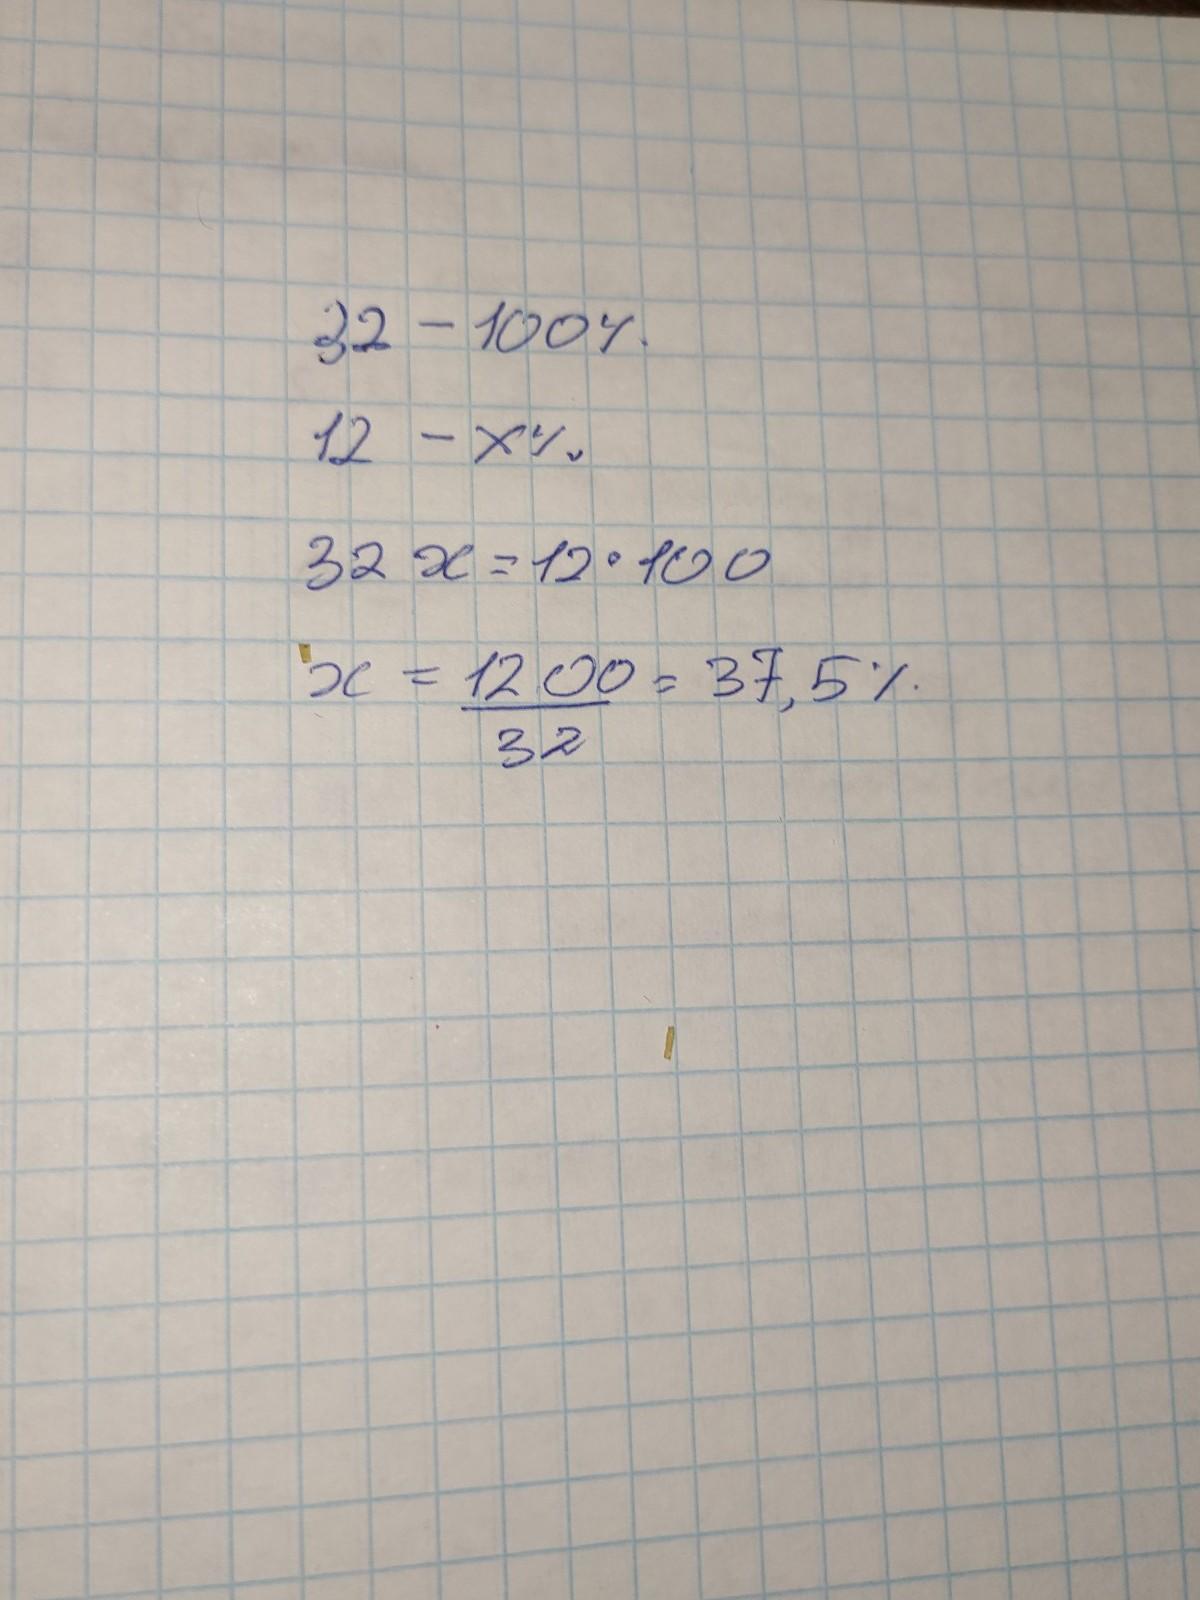 32 - 100%
12 - x%
32 x = 12 · 100
x = 1200/32 = 37,5%